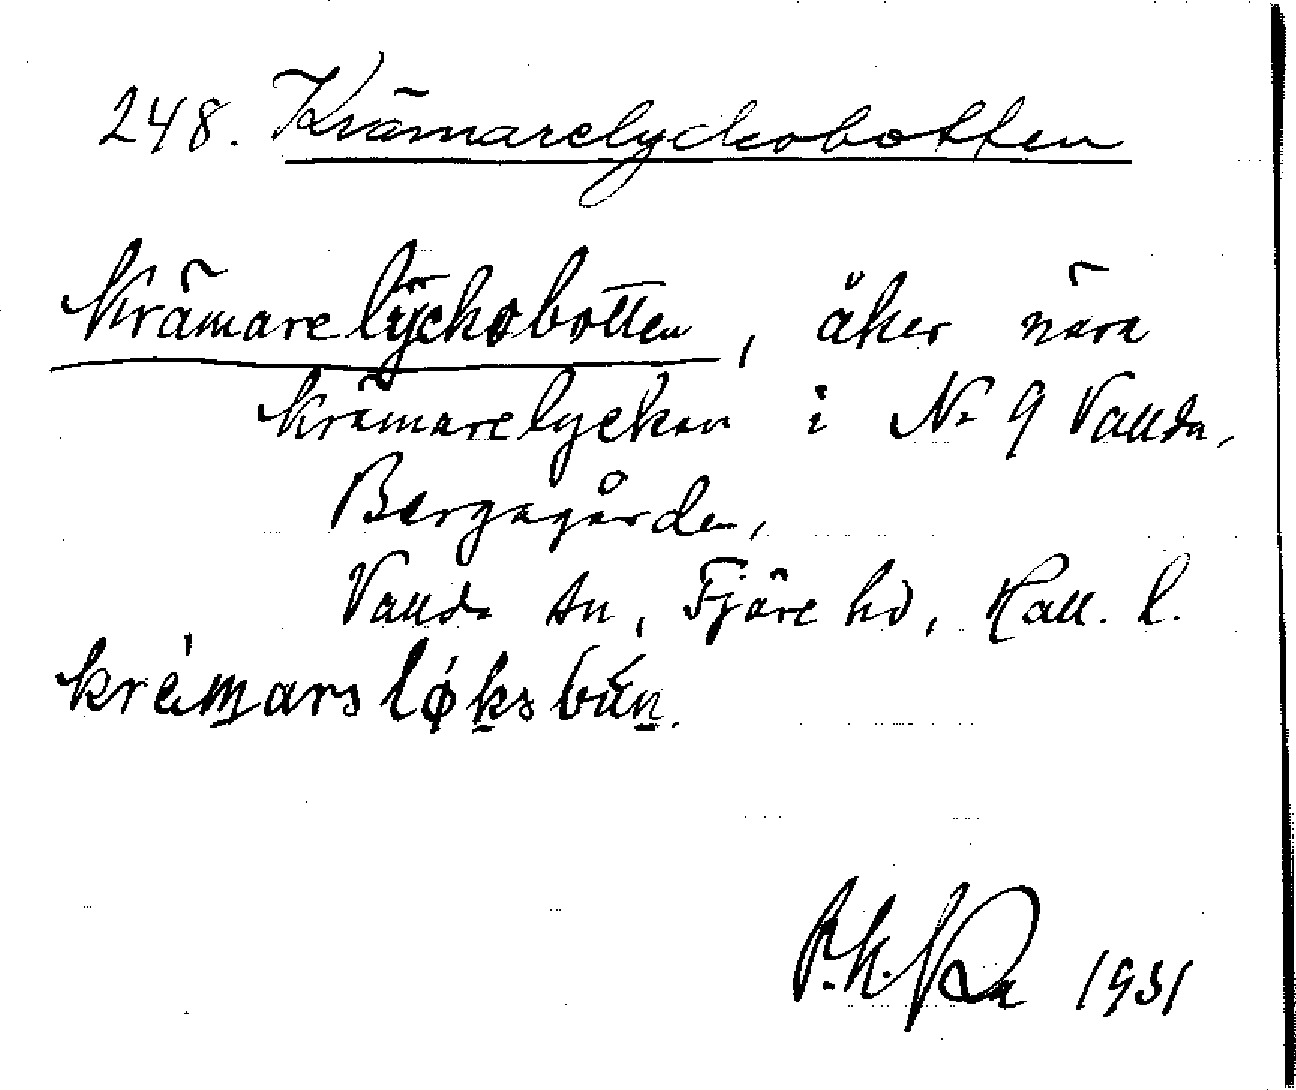 248. Krämarelyckobotten
Krämarelyckobotten, åker nära
Krämarelyckan i No 9 Vallda,
Bergagården,
Vallda sn, Fjäre hd, Hall. l.
krämars løks bún.
1931